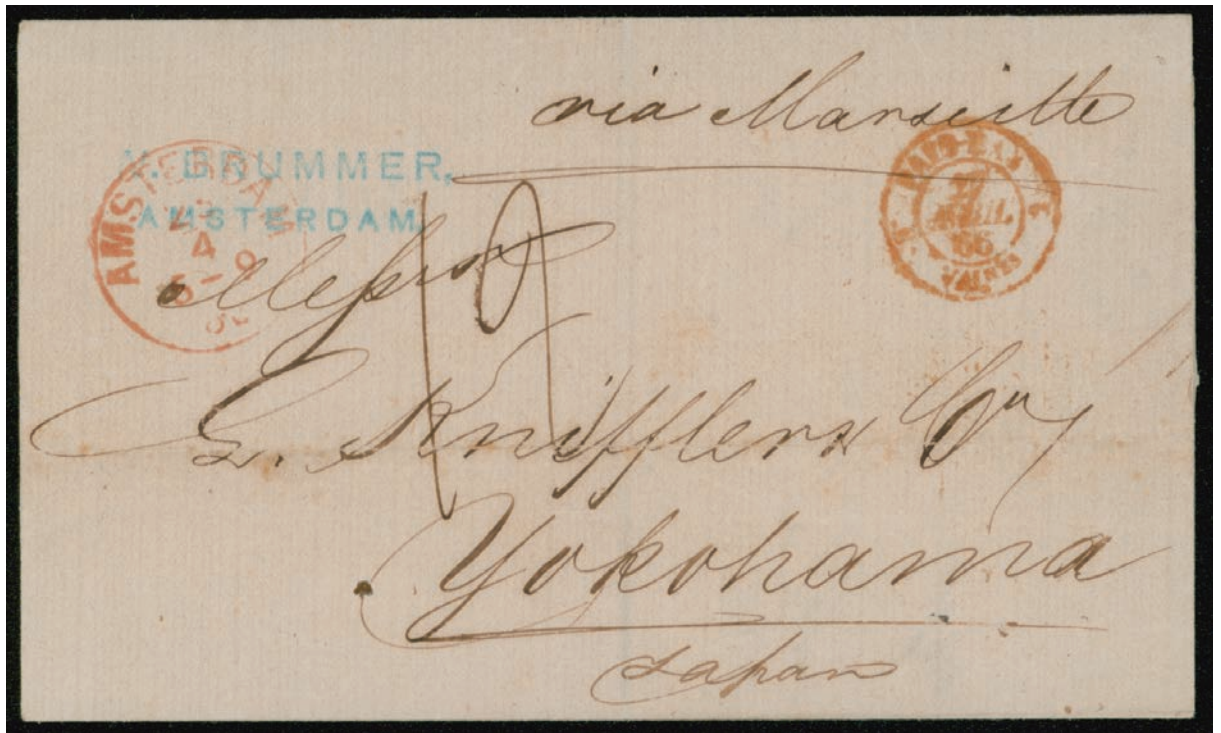 via Marseille
V. BRUMMER,
AMSTERDAM.
AMSTERDAM
4
PAYS-BAS
27
AVRIL
66
VALnes
Messrs
L. Kniffler & Co
Yokohama
Japan